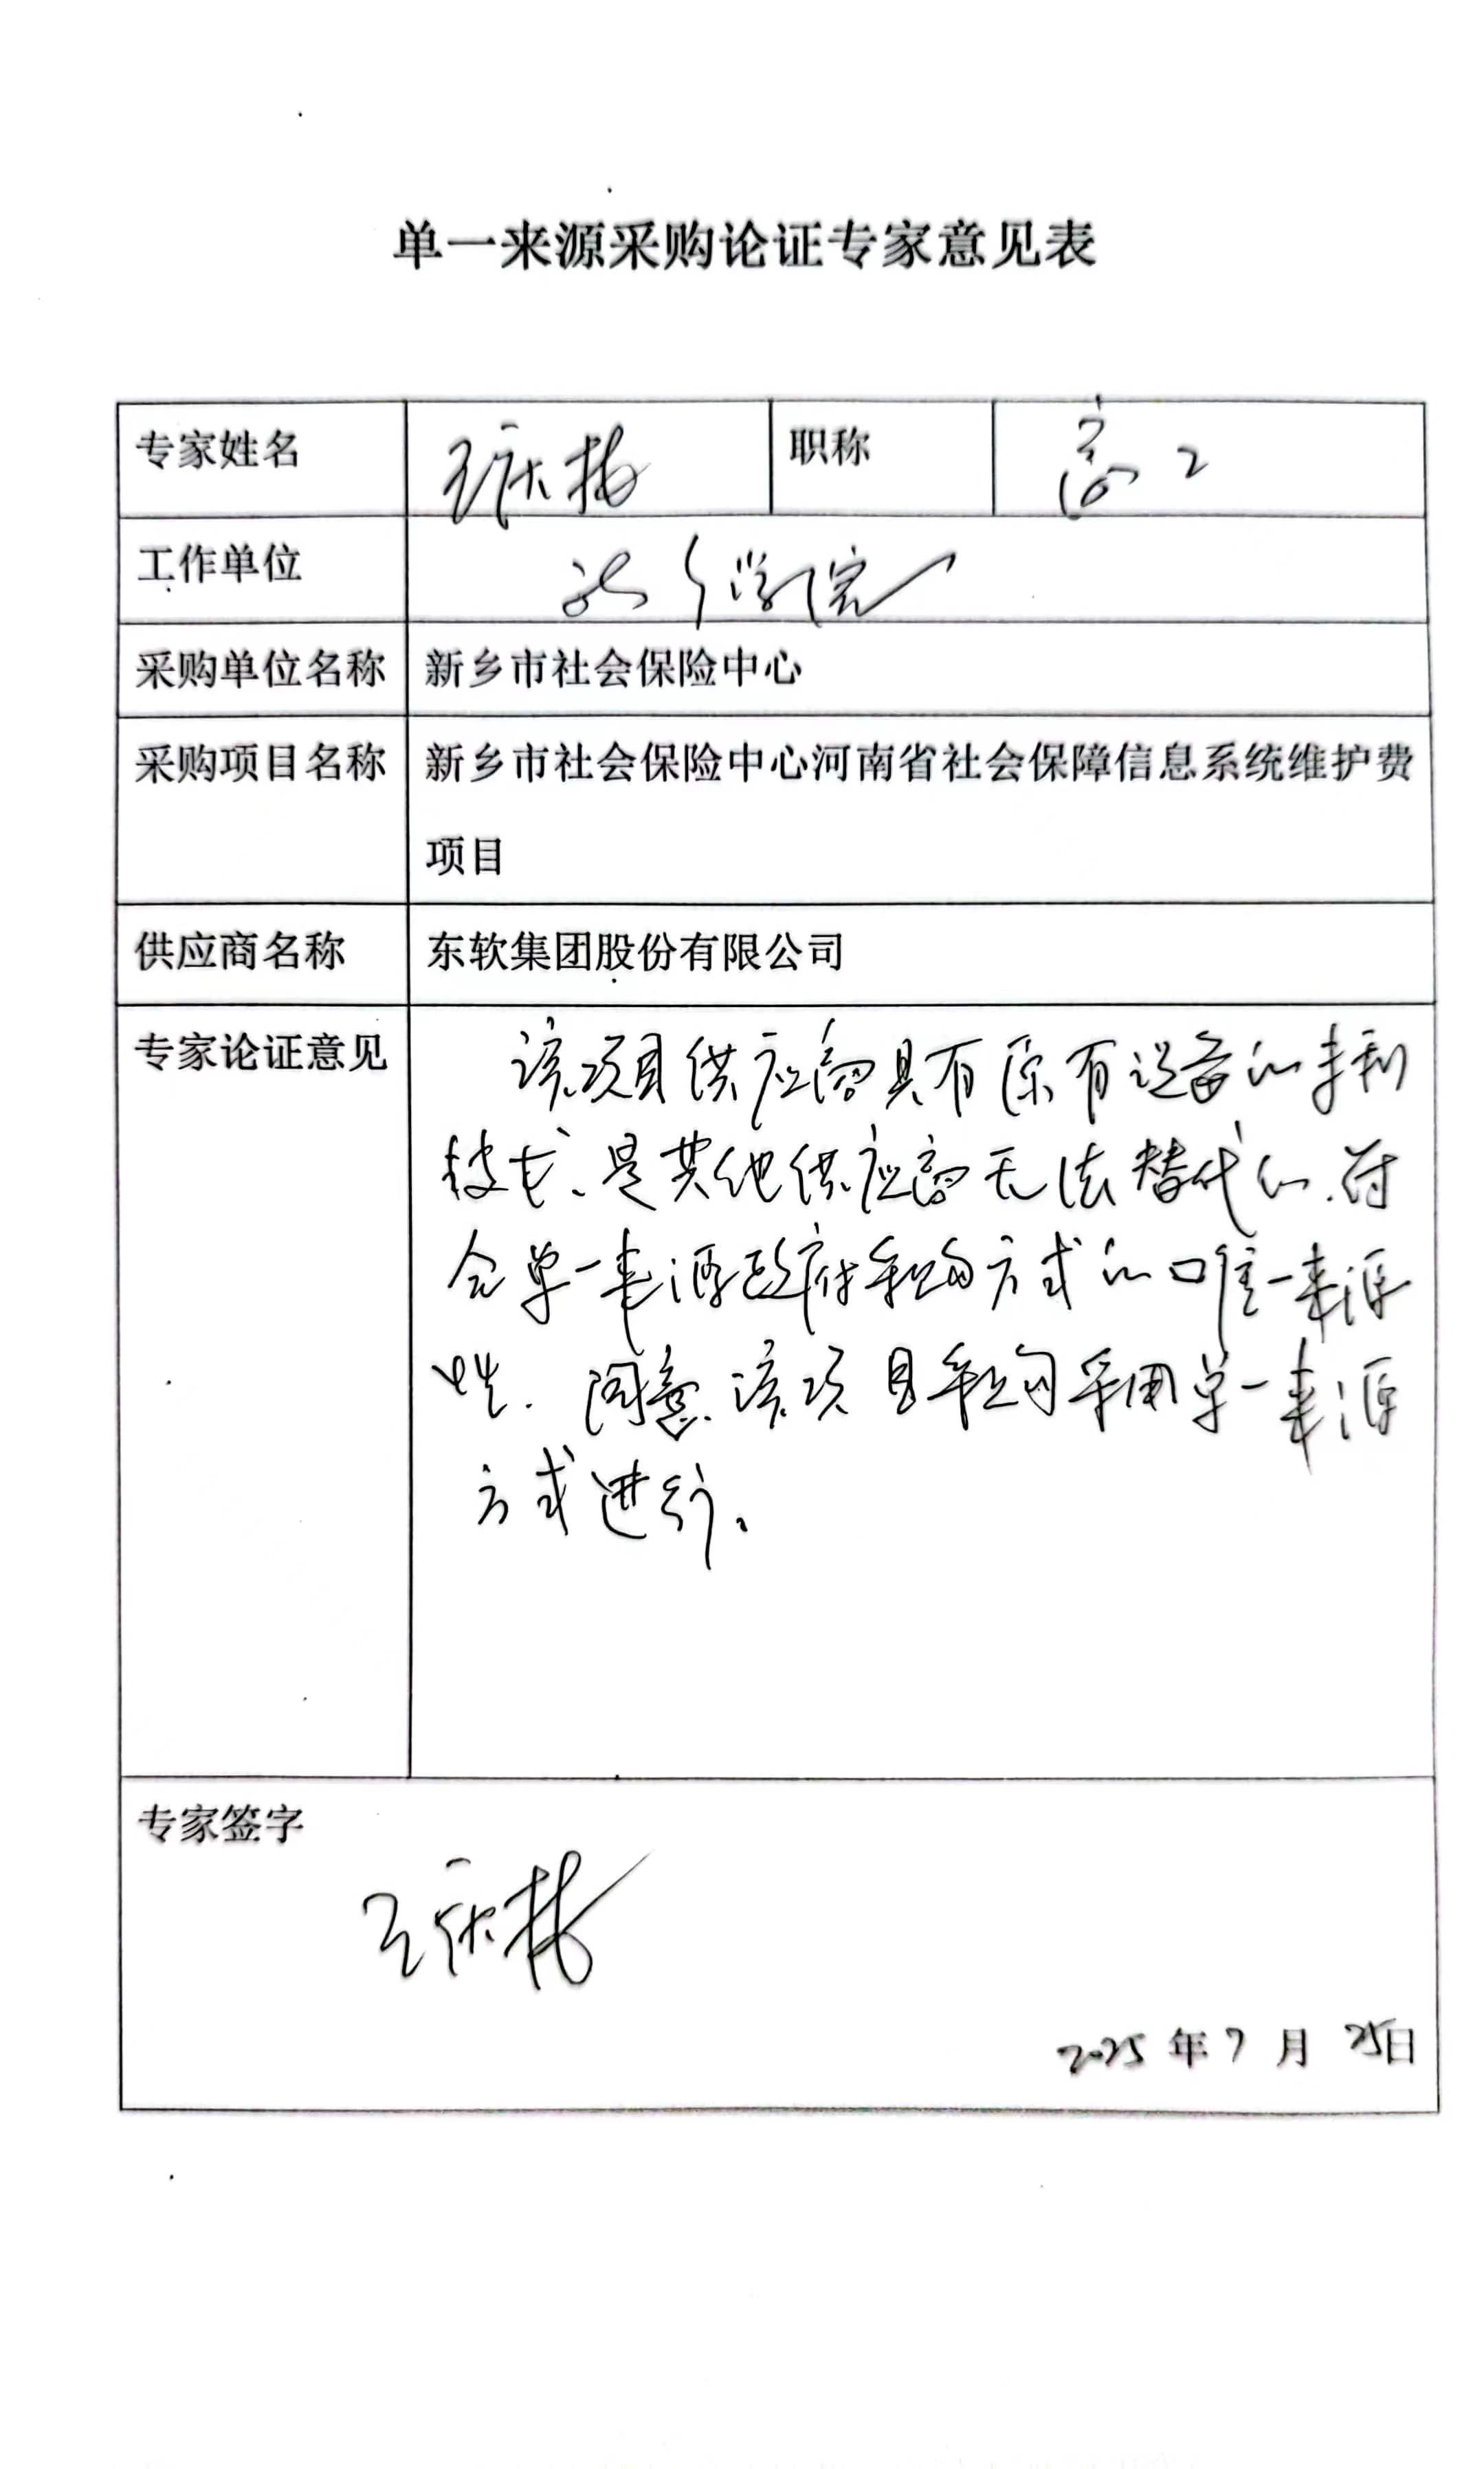 单一来源采购论证专家意见表
专家姓名 王庆梅 职称 高工
工作单位 新乡学院
采购单位名称 新乡市社会保险中心
采购项目名称 新乡市社会保险中心河南省社会保障信息系统维护费
项目
供应商名称 东软集团股份有限公司
专家论证意见 该项目供应商具有原有设备的专利
技术、是其他供应商无法替代的.符
合单一来源政府采购方式的唯一来源
性. 同意该项目采购采用单一来源
方式进行。
专家签字
王庆梅
2025 年 7 月 25日